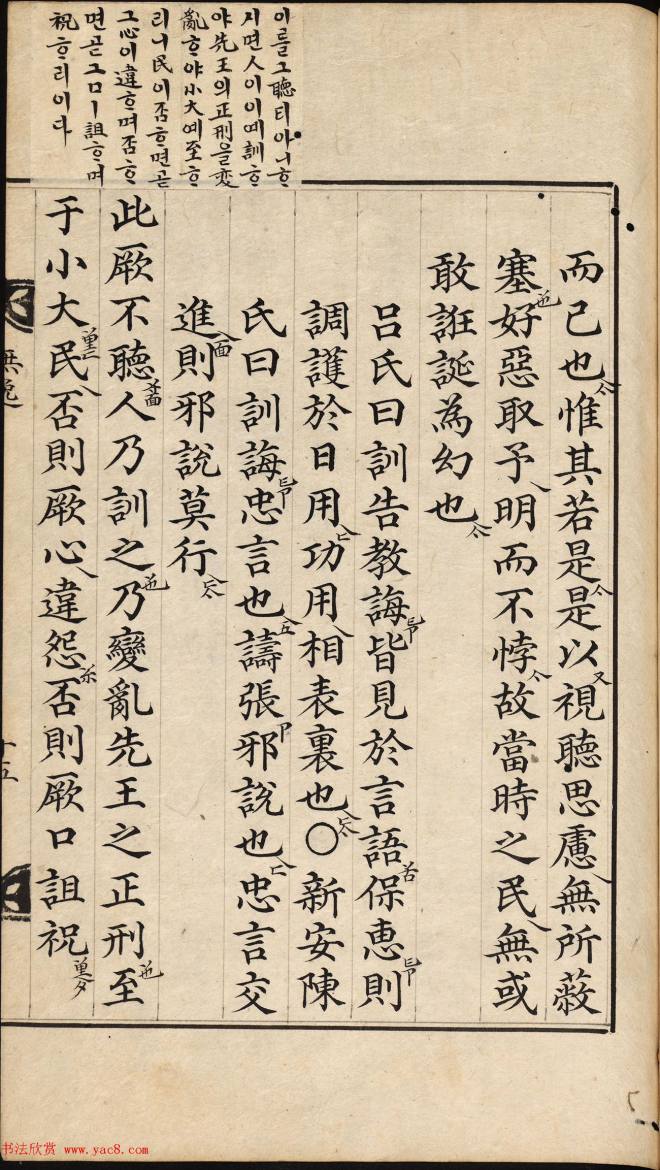 이를그聽티아니ᄒᆞ
시면人이이예訓ᄒᆞ
야先王의正刑을変
亂ᄒᆞ야小大예至ᄒᆞ
리니民이否ᄒᆞ면곧
그心이違ᄒᆞ며否ᄒᆞ
면곧그口ㅣ詛ᄒᆞ며
祝ᄒᆞ리이다
而已也惟其若是是以視聽思慮無所蔽
塞好惡取予明而不悖故當時之民無或
敢誑誕為幻也
呂氏曰訓告教誨皆見於言語保惠則
調護於日用功用相表裏也〇新安陳
氏曰訓誨忠言也譸張邪說也忠言交
進則邪說莫行
此厥不聽人乃訓之乃變亂先王之正刑至
于小大民否則厥心違怨否則厥口詛祝
無逸
十五
书法欣赏 www.yac8.com